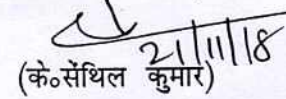 21/11/18
(के०सेंथिल कुमार)